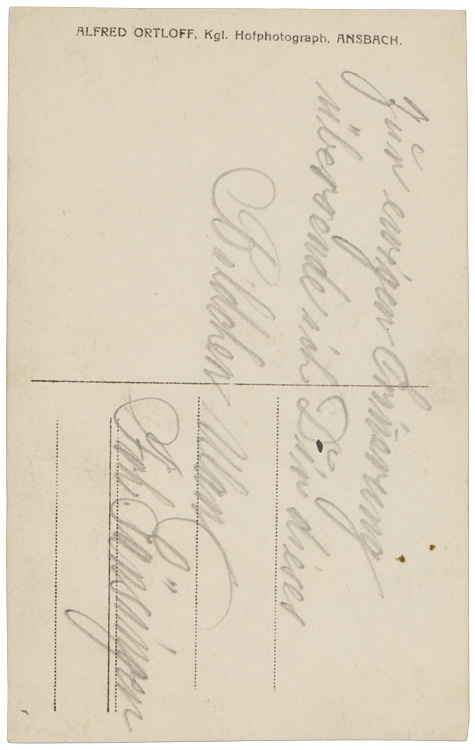 ALFRED ORTLOFF, Kgl. Hofphotograph, ANSBACH.
Zur ewigen Erinnerung
übersende ich Dir dieses
Bildchen